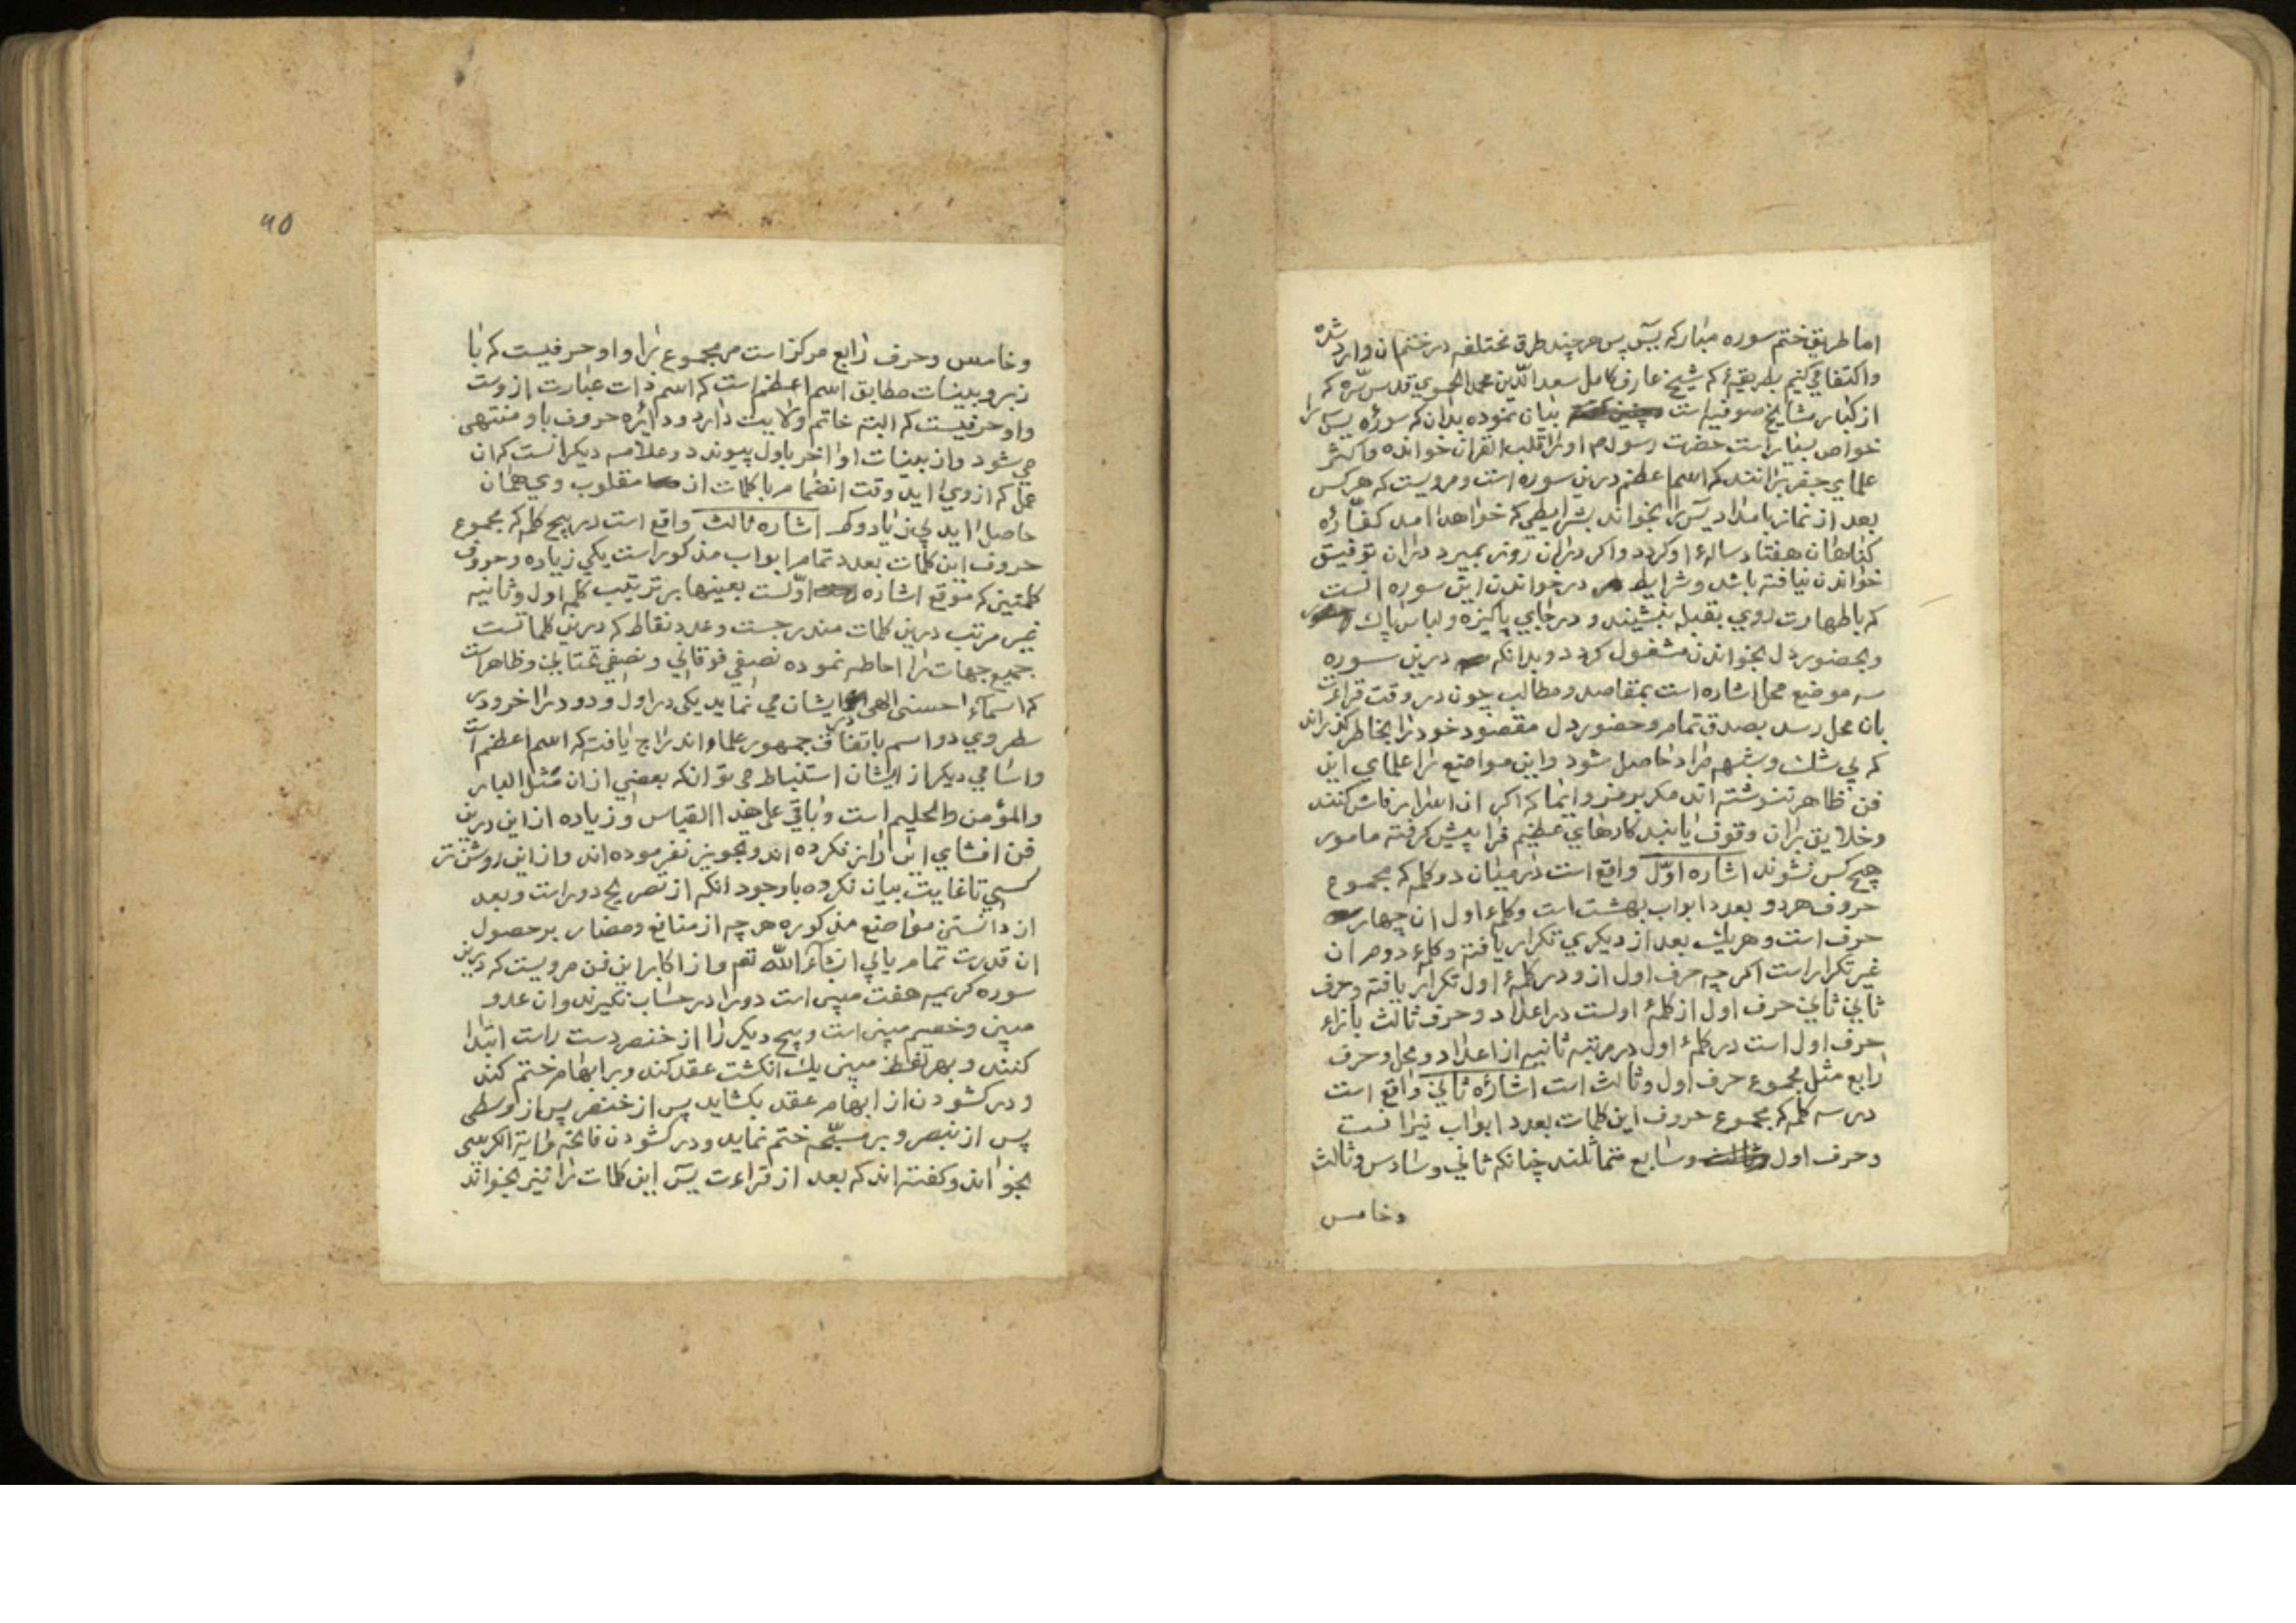 اما طریق ختم سوره مبارکه یس پس هر چند طرق مختلفه در ختم ان وارد شده
واکتفا می کنیم بطریقهٔ که شیخ عارف کامل سعد الدین محمد الحموی قدس سره که
از کبار مشایخ صوفیه است بیان نموده بدان که سورهٔ یس را
خواص بسیار است حضرت رسول م اورا قلب القران خوانده واکثر
علمای جفر برانند که اسم اعظم درین سوره است ومرویست که هرکس
بعد از نماز بامداد یس را بخواند بشرایطی که خواهد امد کفّارهٔ
کناهان هفتاد سالهٔ او کردد واکر دران روز بمیرد دران توفیق
خواندن نیافته باشد وشرایط در خواندن این سوره انست
که باطهارت روی بقبله بنشیند و در جایی پاکیزه ولباس پاک
وبحضور دل بخواندن مشغول کردد وبدانکه درین سوره
سه موضع محل اشاره است بمقاصد ومطالب چون در وقت قراءت
بان محل رسد بصدق تمام وحضور دل مقصود خود را بخاطر کذراند
که بی شک وشبهه مراد حاصل شود واین مواضع را علمای این
فن ظاهر ننوشته اند مکر برمز وایما که اکر ان اعزاز فاش کنند
وخلایق بران وقوف یابند کارهای عظیم فرا پیش کرفته مامور
هیچ کس نشوند اشاره اوّل واقع است در میان دو کلمه که مجموع
حروف هردو بعدد ابواب بهشت است وکلمهٔ اول ان چهار
حرف است وهر یک بعد از دیکری تکرار یافته وکلمهٔ دوم ان
غیر تکرار است اکر چه حرف اول از و در کلمهٔ اول تکرار یافته وحرف
ثانی ثانی حرف اول از کلمهٔ اولست در اعداد وحرف ثالث بازاء
حرف اول است در کلمهٔ اول در مرتبه ثانیه از اعداد ومحل وحرف
رابع مثل مجموع حرف اول وثالث است اشارهٔ ثانی واقع است
در سه کلمه که مجموع حروف این کلمات بعدد ابواب نیرانست
وحرف اول وسابع متماثلند چنانکه ثانی وسادس وثالث
وخامس
۹۵
وخامس وحرف رابع مرکز است مر مجموع را و او حرفیست که با
زبر وبینات مطابق اسم اعظم است که اسم ذات عبارت ازوست
واو حرفیست که البته خاتم ولایت دارد ودایره حروف باو منتهی
می شود واز بینات او اخر باول پیوندد وعلامه دیکر انست که ان
عمل که از وی اید وقت انضمام باکلمات از مقلوب وی همان
حاصل اید بی زیاد وکم اشاره ثالث واقع است در پنج کلمه که مجموع
حروف این کلمات بعدد تمام ابواب مذکور است یکی زیاده وحروف
کلمتین که موقع اشاره اوّلست بعینها بر ترتیب کلمه اول وثانیه
غیر مرتب درین کلمات مندرجست وعدد نقاط که درین کلماتست
جمیع جهات را احاطه نموده نصفی فوقانی ونصفی تحتانی وظاهر است
که اسمآء احسنی الهی ایشان می نماید یکی در اول ودو در اخر ودر
سطروی دو اسم باتفاق جمهور علما واند راج یافت که اسم اعظم است
واسامی دیکر از ایشان استنباط می توانکه بعضی ازان مثل البار
والمؤمن والحلیم است وباقی علی هذا القیاس وزیاده از این درین
فن افشای این راز نکرده اند وتجویز نفرموده اند واز این روشن تر
کسی تاغایت بیان نکرده باوجود انکه از تصریح دور است وبعد
از دانستن مواضع مذکوره هرچه از منافع ومضار بر حصول
ان قدرت تمام یابی انشآء الله تعم واز اکابر این فن مرویست که درین
سوره کریمه هفت مبین است دو را در حساب نکیرند وان عدو
مبین وخصیم مبین است وپنج دیکر را از خنصر دست راست ابتدا
کنند وبهر لفظ مبین یک انکشت عقد کند وبر ابهام ختم کند
و در کشودن از ابهام عقد بکشاید پس از خنصر پس از وسطی
پس از بنصر وبر مسبّحه ختم نماید ودر کشودن فاتحه وایة الکرسی
بخواند وکفته اند که بعد از قراءت یس این کلمات را نیز بخواند